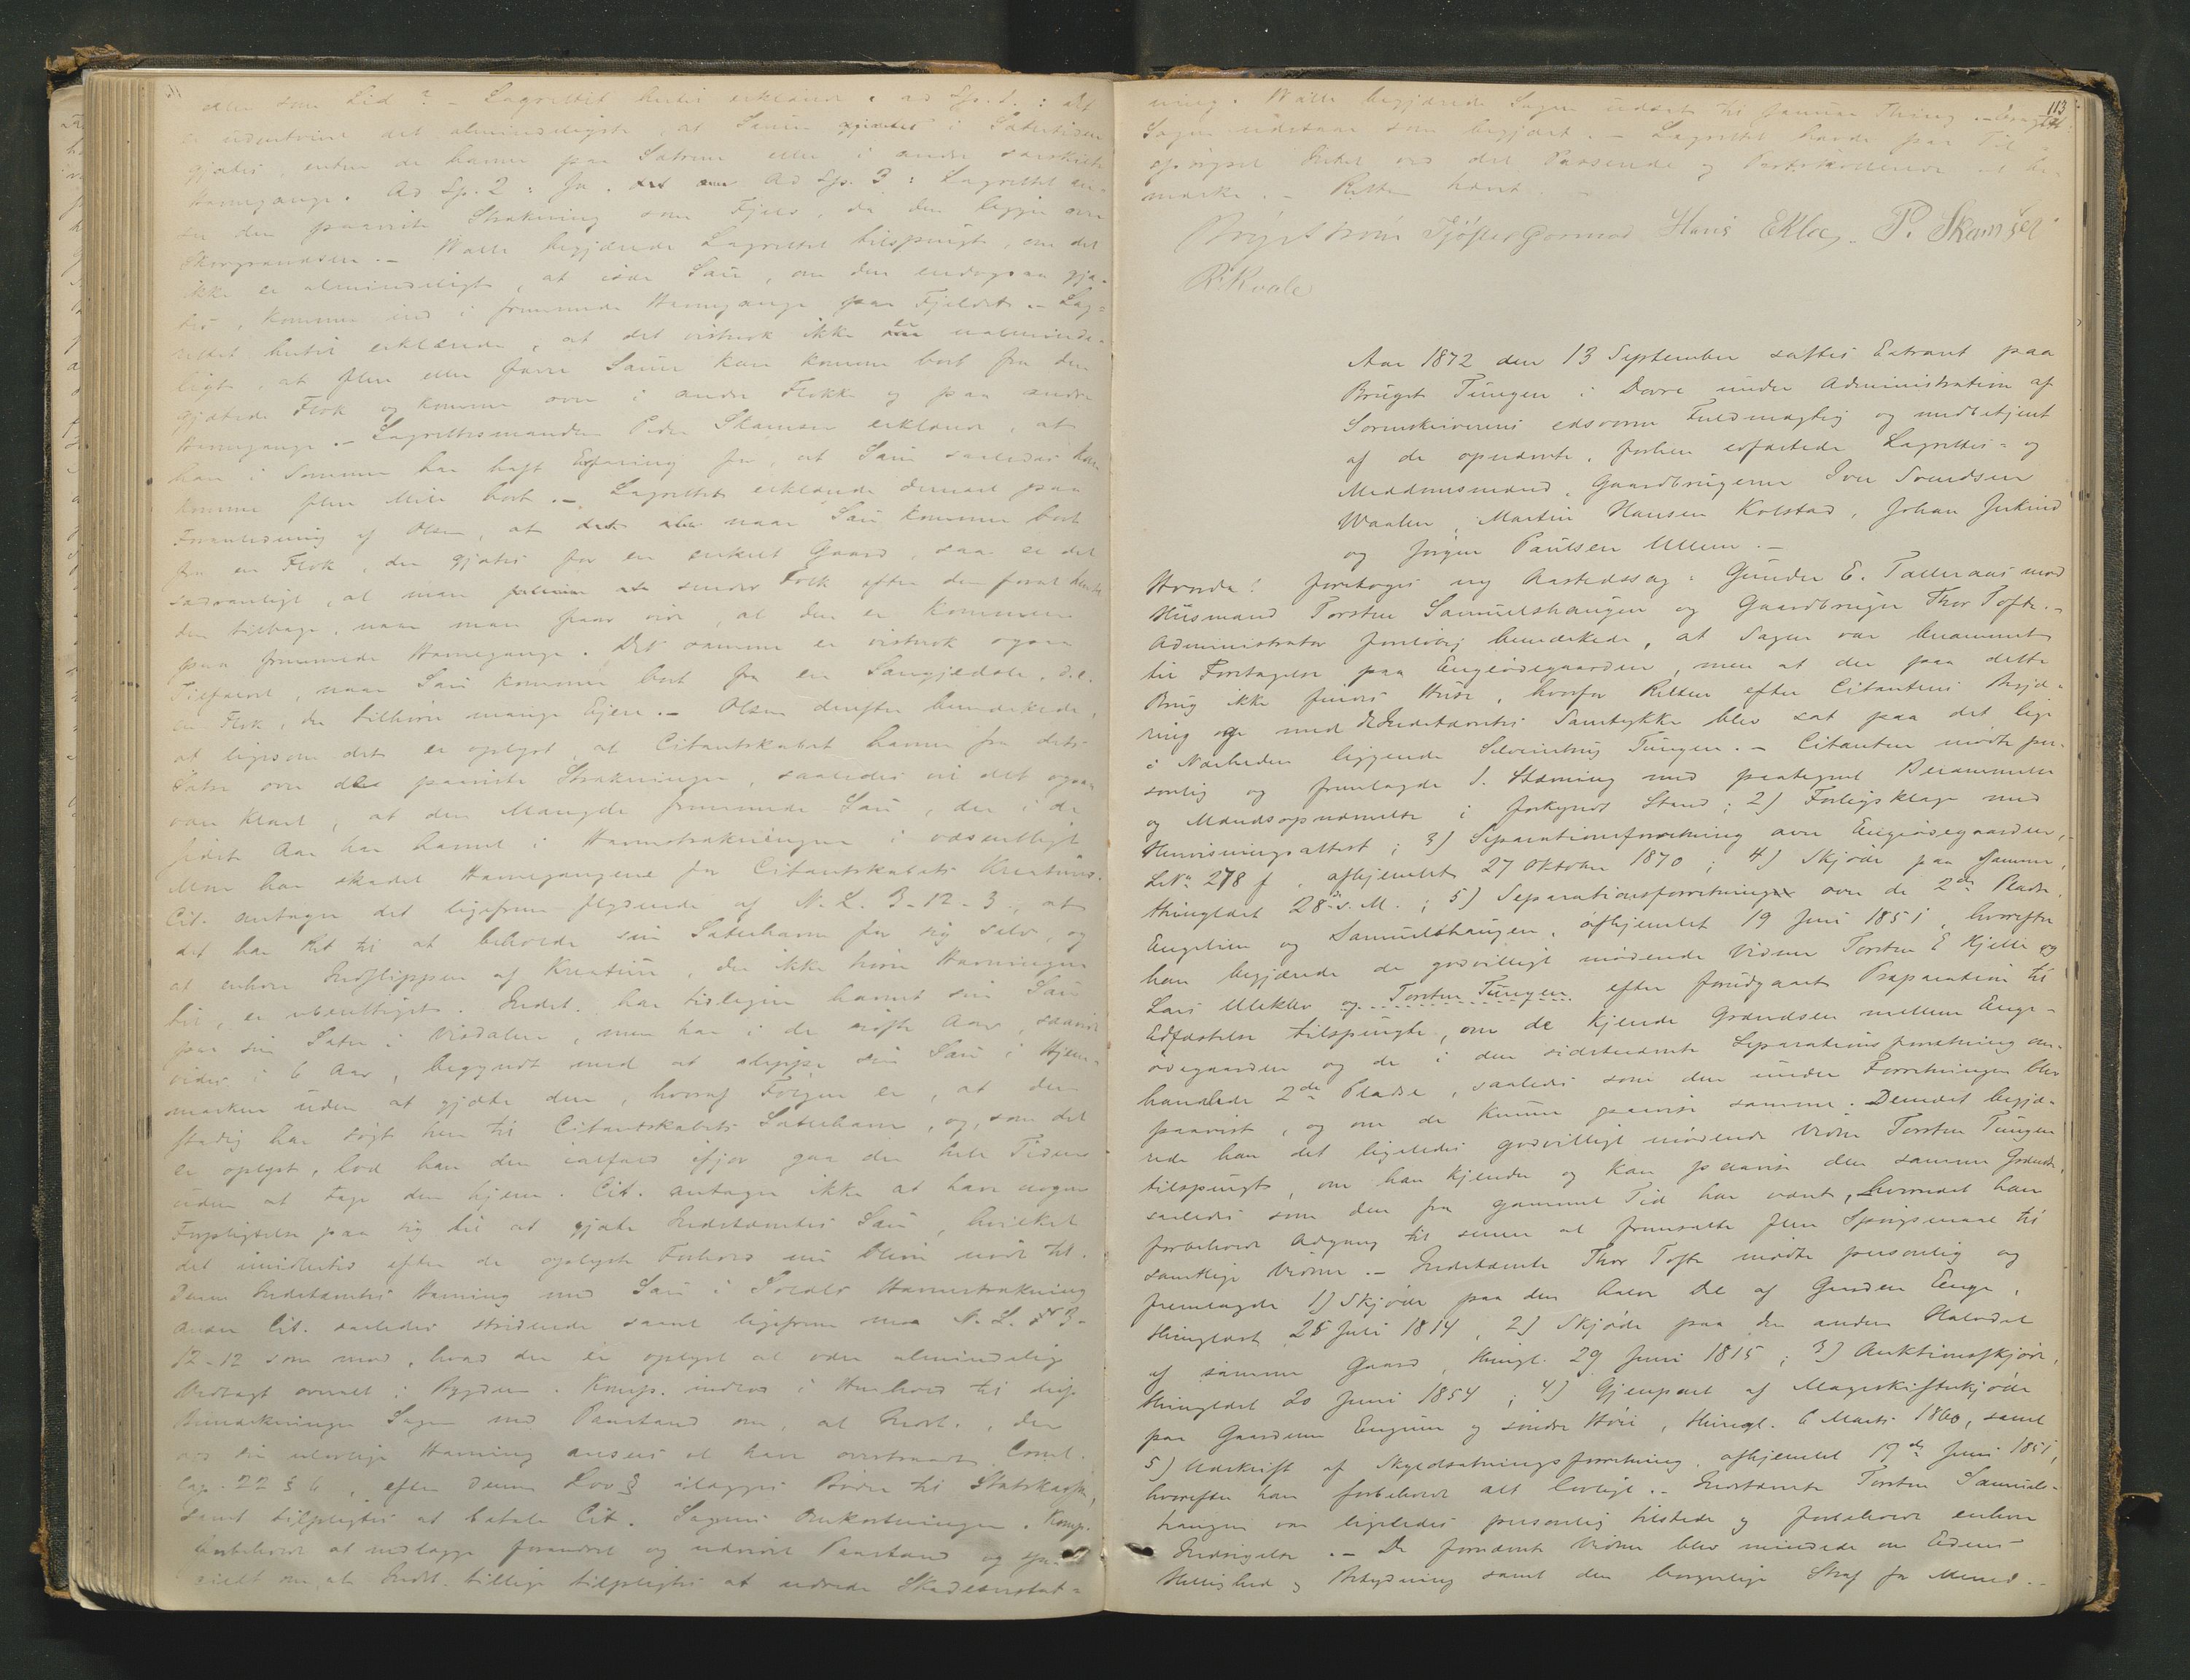 eller som Lid? – Lagrettet hertil erklærede: ad Sp. 1: det
er udentvivl det almindeligste, at Sauen gjætes i Sætertiden
gjætes, enten de havne paa Sætrene eller i andre særskilte
Havnegange. Ad Sp. 2: Ja. Ad Sp. 3: Lagrettet an-
ser den paaviste Strækning som Fjeld, da den ligger over
Skovgrændsen. – Walle begjærede Lagrettet tilspurgt, om det
ikke er almindeligt, at især Sau, om den endogsaa gjæ-
tes, kommer ind i fremmede Havnegange paa Fjeldet. – Lag-
rettet hertil erklærede, at det vistnok ikke er ualminde-
ligt, at flere eller færre Sauer kan komme bort fra den
gjætede Flok og komme over i andre Flokke og paa andre
Havnegange. – Lagrettesmanden Peder Skamsar erklærede, at
han i Sommer har havt Erfaring for, at Sau saaledes kan
komme flere Mile bort. – Lagrettet erklærede dernæst paa
Foranledning af Olsen, at naar Sau kommer bort
fra en Flok, der gjætes for en enkelt Gaard, saa er det
sædvanligt, at man sender Folk efter den forat hente
den tilbage, naar man faar vide, at den er kommen
paa fremmede Havnegange. Det samme er vistnok ogsaa
Tilfældet, naar Sau kommer bort fra en Saugjedsle, d.e.
en Flok, der tilhører mange Ejere. – Olsen derefter bemærkede,
at ligesom det er oplyst, at Citantskabet havner fra dets
Sæter over de paaviste Strækninger, saaledes vil det ogsaa
være klart, at den Mængde fremmede Sau, der i de
sidste Aar har havnet i Havnestrækningen i væsentligt
Mon har skadet Havnegangene for Citantskabets Kreature.
Cit. antager det ligefrem flydende af N. L. 3-12-3, at
det har Ret til at beholde sin Sæterhavn for sig selv, og
at enhver Indslippen af Kreature, der ikke hører Havningen
til, er uberettiget. Indst. har tidligere havnet sin Sau
paa sin Sæter i Visdalen, men har i de sidste Aar, saavidt
vides i 6 Aar, begyndt med at slippe sin Sau i Hjem-
marken uden at gjæte den, hvoraf Følgen er, at den
stadig har søgt hen til Citantskabets Sæterhavn, og, som det
er oplyst, lod han den ialfald ifjor gaa der hele Tiden
uden at tage den hjem. Cit. antager ikke at have nogen
Forpligtelse paa sig til at gjæte Indstævntes Sau, hvilket
det imidlertid efter de oplyste Forhold vil blive nødt til.
Denne Indstævntes Havning med Sau i Havnestrækning
anser Cit. saaledes stridende saavel ligefrem mod N. L. 3-
12-12 som mod, hvad der er oplyst at være almindelig
Vedtægt overalt i Bygden. Komp. indlod i Henhold til disse
Bemærkninger Sagen med Paastand om, at Indst., der
ved sin ulovlige Havning ansees at have overtraadt Criml.
Cap. 22 § 6, efter denne Lov § ilægges Bøder til Statskassen,
samt tilpligtes at betale Cit. Sagens Omkostninger. Komp.
forbeholdt at nedlægge forandret og udvidet Paastand og spe-
cielt om, at Indst. tillige tilpligtes at udrede Skadeserstat-
113
ning. Walle begjærede Sagen udsat til Januar Thing. –
Sagen udstaar som begjæret. – Lagrettet havde paa Til-
spørgsel Intet ved det Passerede og Protokollerede at be-
mærke. – Retten hævet. –
Tjøstel Gormod Hans Ekloe P. Skamser
R Kvale
Aar 1872 den 13 September sattes Extraret paa
Bruget Tungen i Dovre under Administration af
Sorenskriverens edsvorne Fuldmægtig og medbetjent
af de opnævnte, forhen edfæstede Lagrettes- og
Meddomsmænd, Gaardbrugerne Iver Svendsen
Waalen, Martin Hansen Kolstad, Johan Jukind
og Jørgen Paulsen Ullern. –
Hvorda! foretoges ny Aastedssag: Gunder E. Talleraas mod
Husmand Torsten Samuelshaugen og Gaardbruger Thor Tofte. –
Administrator foreløbig bemærkede, at Sagen var berammet
til Foretagelse paa Engeødegaarden, men at der paa dette
Brug ikke findes Huse, hvorfor Retten efter Citantens Begjæ-
ring og med Indstævntes Samtykke blev sat paa det lige
i Nærheden liggende Selveierbrug Tungen. – Citanten mødte per-
sonlig og fremlagde 1. Stævning med paategnet Berammelse
og Mandsopnævnelse i forkyndt Stand; 2) Forligsklage med
Henvisningsattest; 3) Separationsforretning over Engeødegaarden,
L.No 278 f, afhjemlet 27 Oktober 1870; 4) Skjøde paa samme,
thinglæst 28 s. M.; 5) Separationsforretning over de 2de Pladse
Engelien og Samuelshaugen, afhjemlet 19 Juni 1851, hvorefter
han begjærede de godvilligt mødende Vidner Torsten E Hjelle og
Lars Uleklev og Torsten Tungen efter forudgaaet Præparation til
Edfæstelse tilspurgte, om de kjende Grændsen mellem Enge-
ødegaarden og de i den sidstnævnte Separationsforretning om-
handlede 2de Pladse, saaledes som den under Forretningen blev
paavist, og om de kunne paavise samme. Dernæst begjæ-
rede han det ligeledes godvilligt mødende Vidne Torsten Tungen
tilspurgt, om han kjender og kan paavise den samme Grændse,
saaledes som den fra gammel Tid har været, hvornæst han
forbeholdt Adgang til senere at fremsætte flere Spørgsmaal til
samtlige Vidner. – Indstævnte Thor Tofte mødte personlig og
fremlagde 1) Skjøde paa den halve Del af Gaarden Enge,
thinglæst 25 Juli 1814, 2) Skjøde paa den anden Halvdel
af samme Gaard, thingl. 29 Juni 1815; 3) Auktionsskjøde,
thinglæst 20 Juni 1854; 4) Gjenpart af Mageskifteskjøde
paa Gaardene Engum og søndre Hvi, thingl. 6 Marts 1860, samt
5) Udskrift af Skyldsætningsforretning, afhjemlet 19de Juni 1851,
hvorefter han forbeholdt alt lovligt. – Indstævnte Torsten Samuels-
haugen var ligeledes personlig tilstede og forbeholdt enhver
Indsigelse. – De fornævnte Vidner blev mindede om Edens
Hellighed og Betydning samt den borgerlige Straf for Mened. –